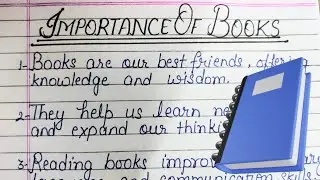 IMPORTANCE OF BOOKS
1- Books are our best friends,
knowledge and wisdom.
2- They help us learn
and expand our
3- Reading books
and communication skills